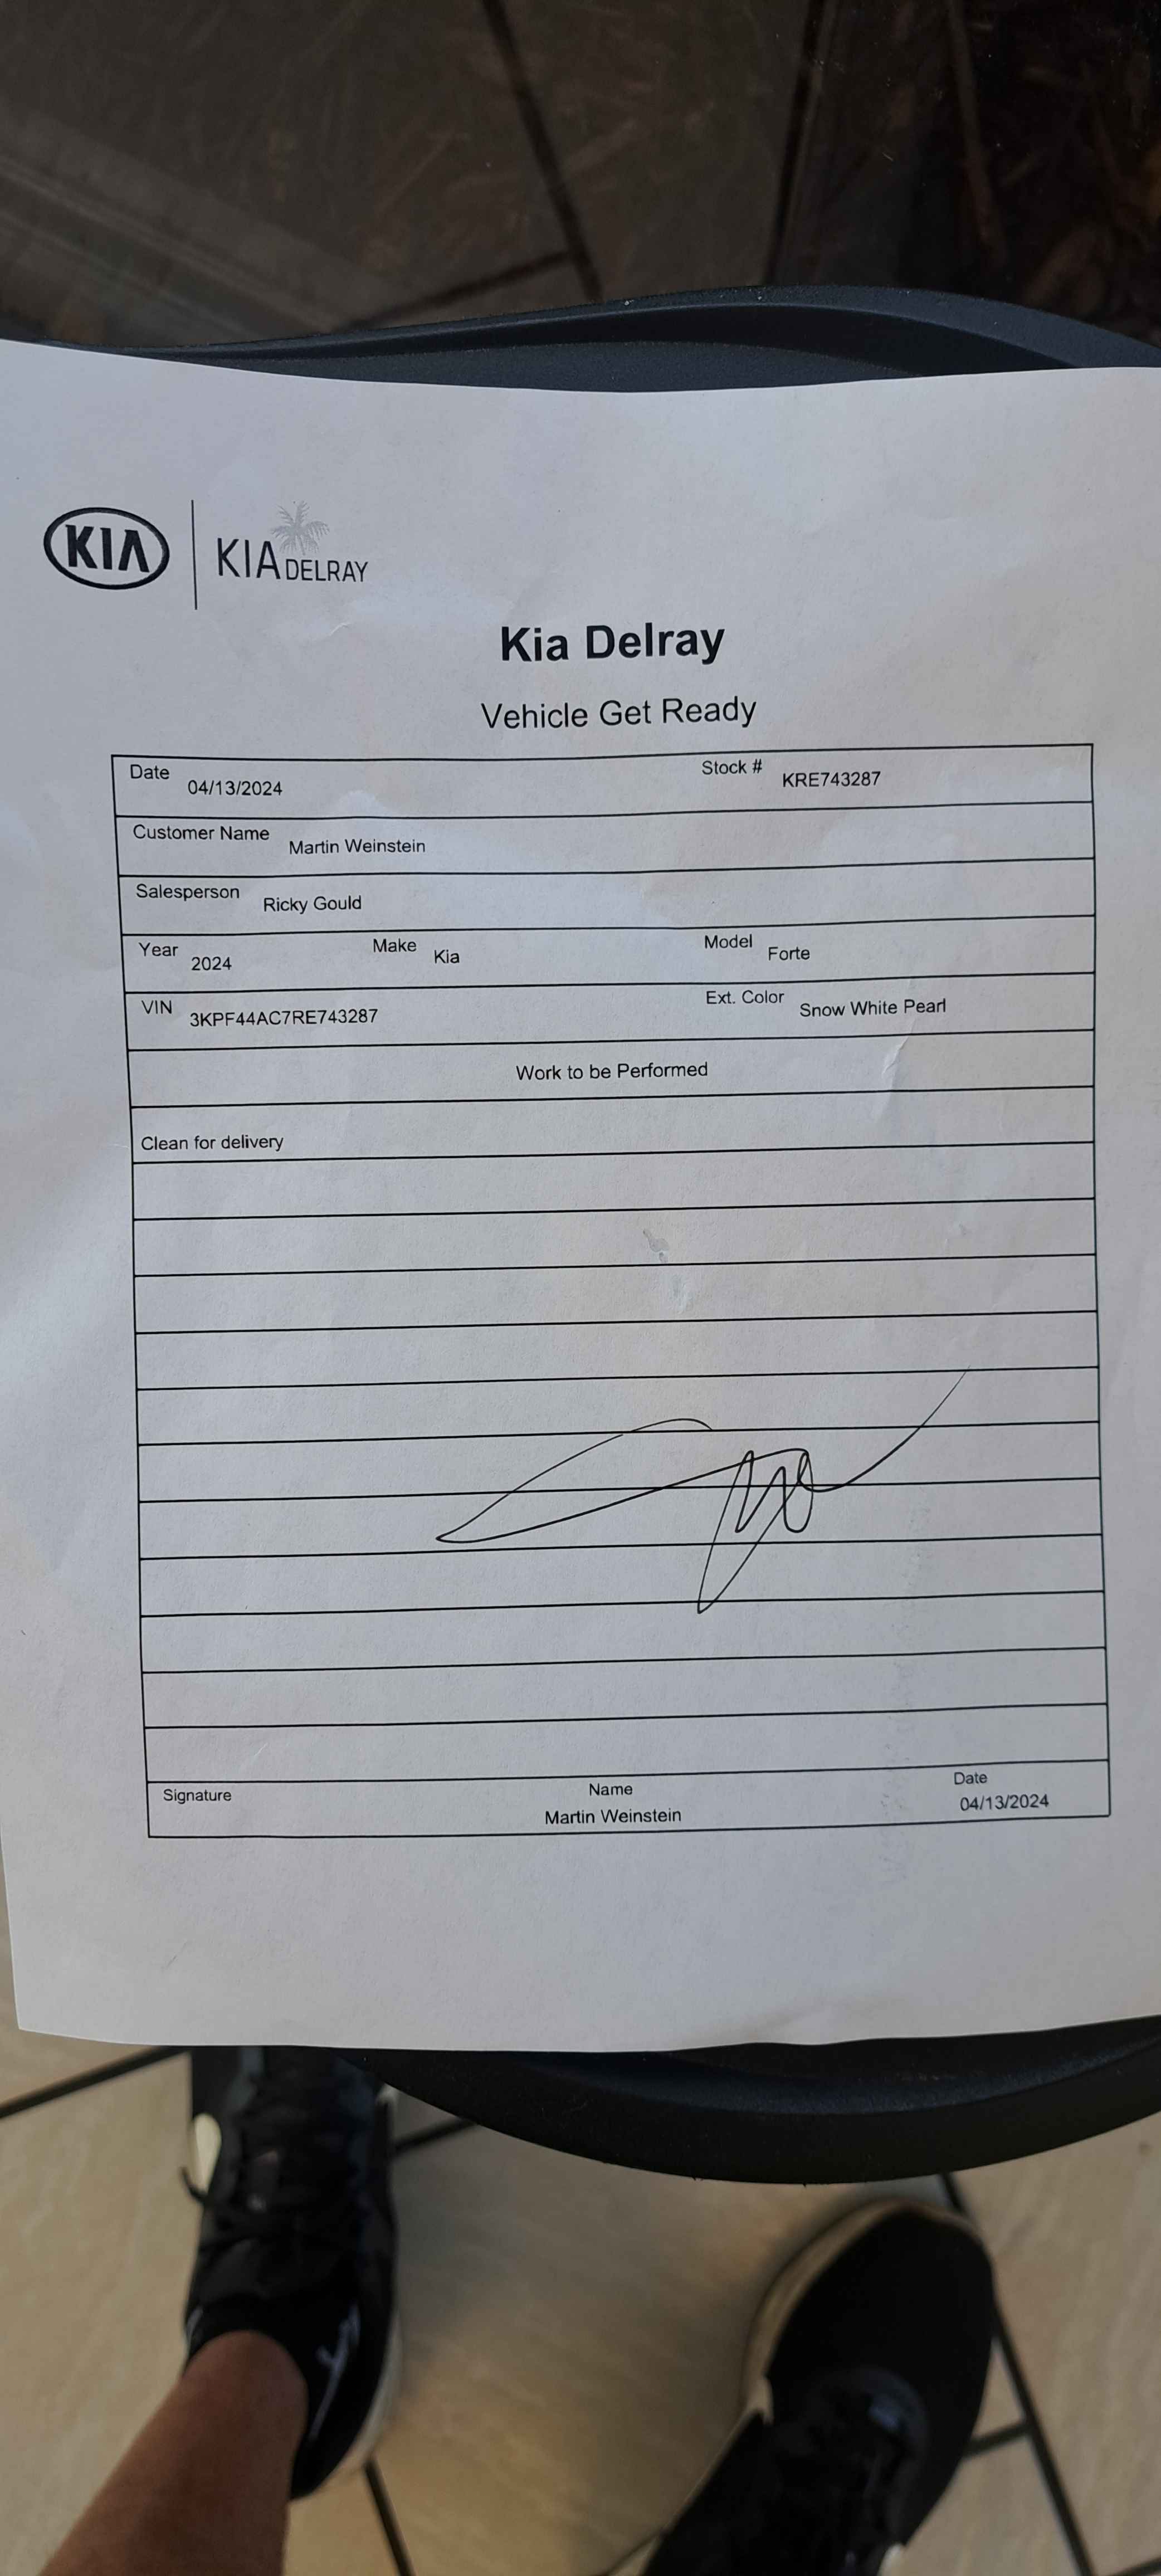 KIA KIA DELRAY
Kia Delray
Vehicle Get Ready
Date 04/13/2024 Stock # KRE743287
Customer Name Martin Weinstein
Salesperson Ricky Gould
Year 2024 Make Kia Model Forte
VIN 3KPF44AC7RE743287 Ext. Color Snow White Pearl
Work to be Performed
Clean for delivery
Signature Name Date
Martin Weinstein 04/13/2024